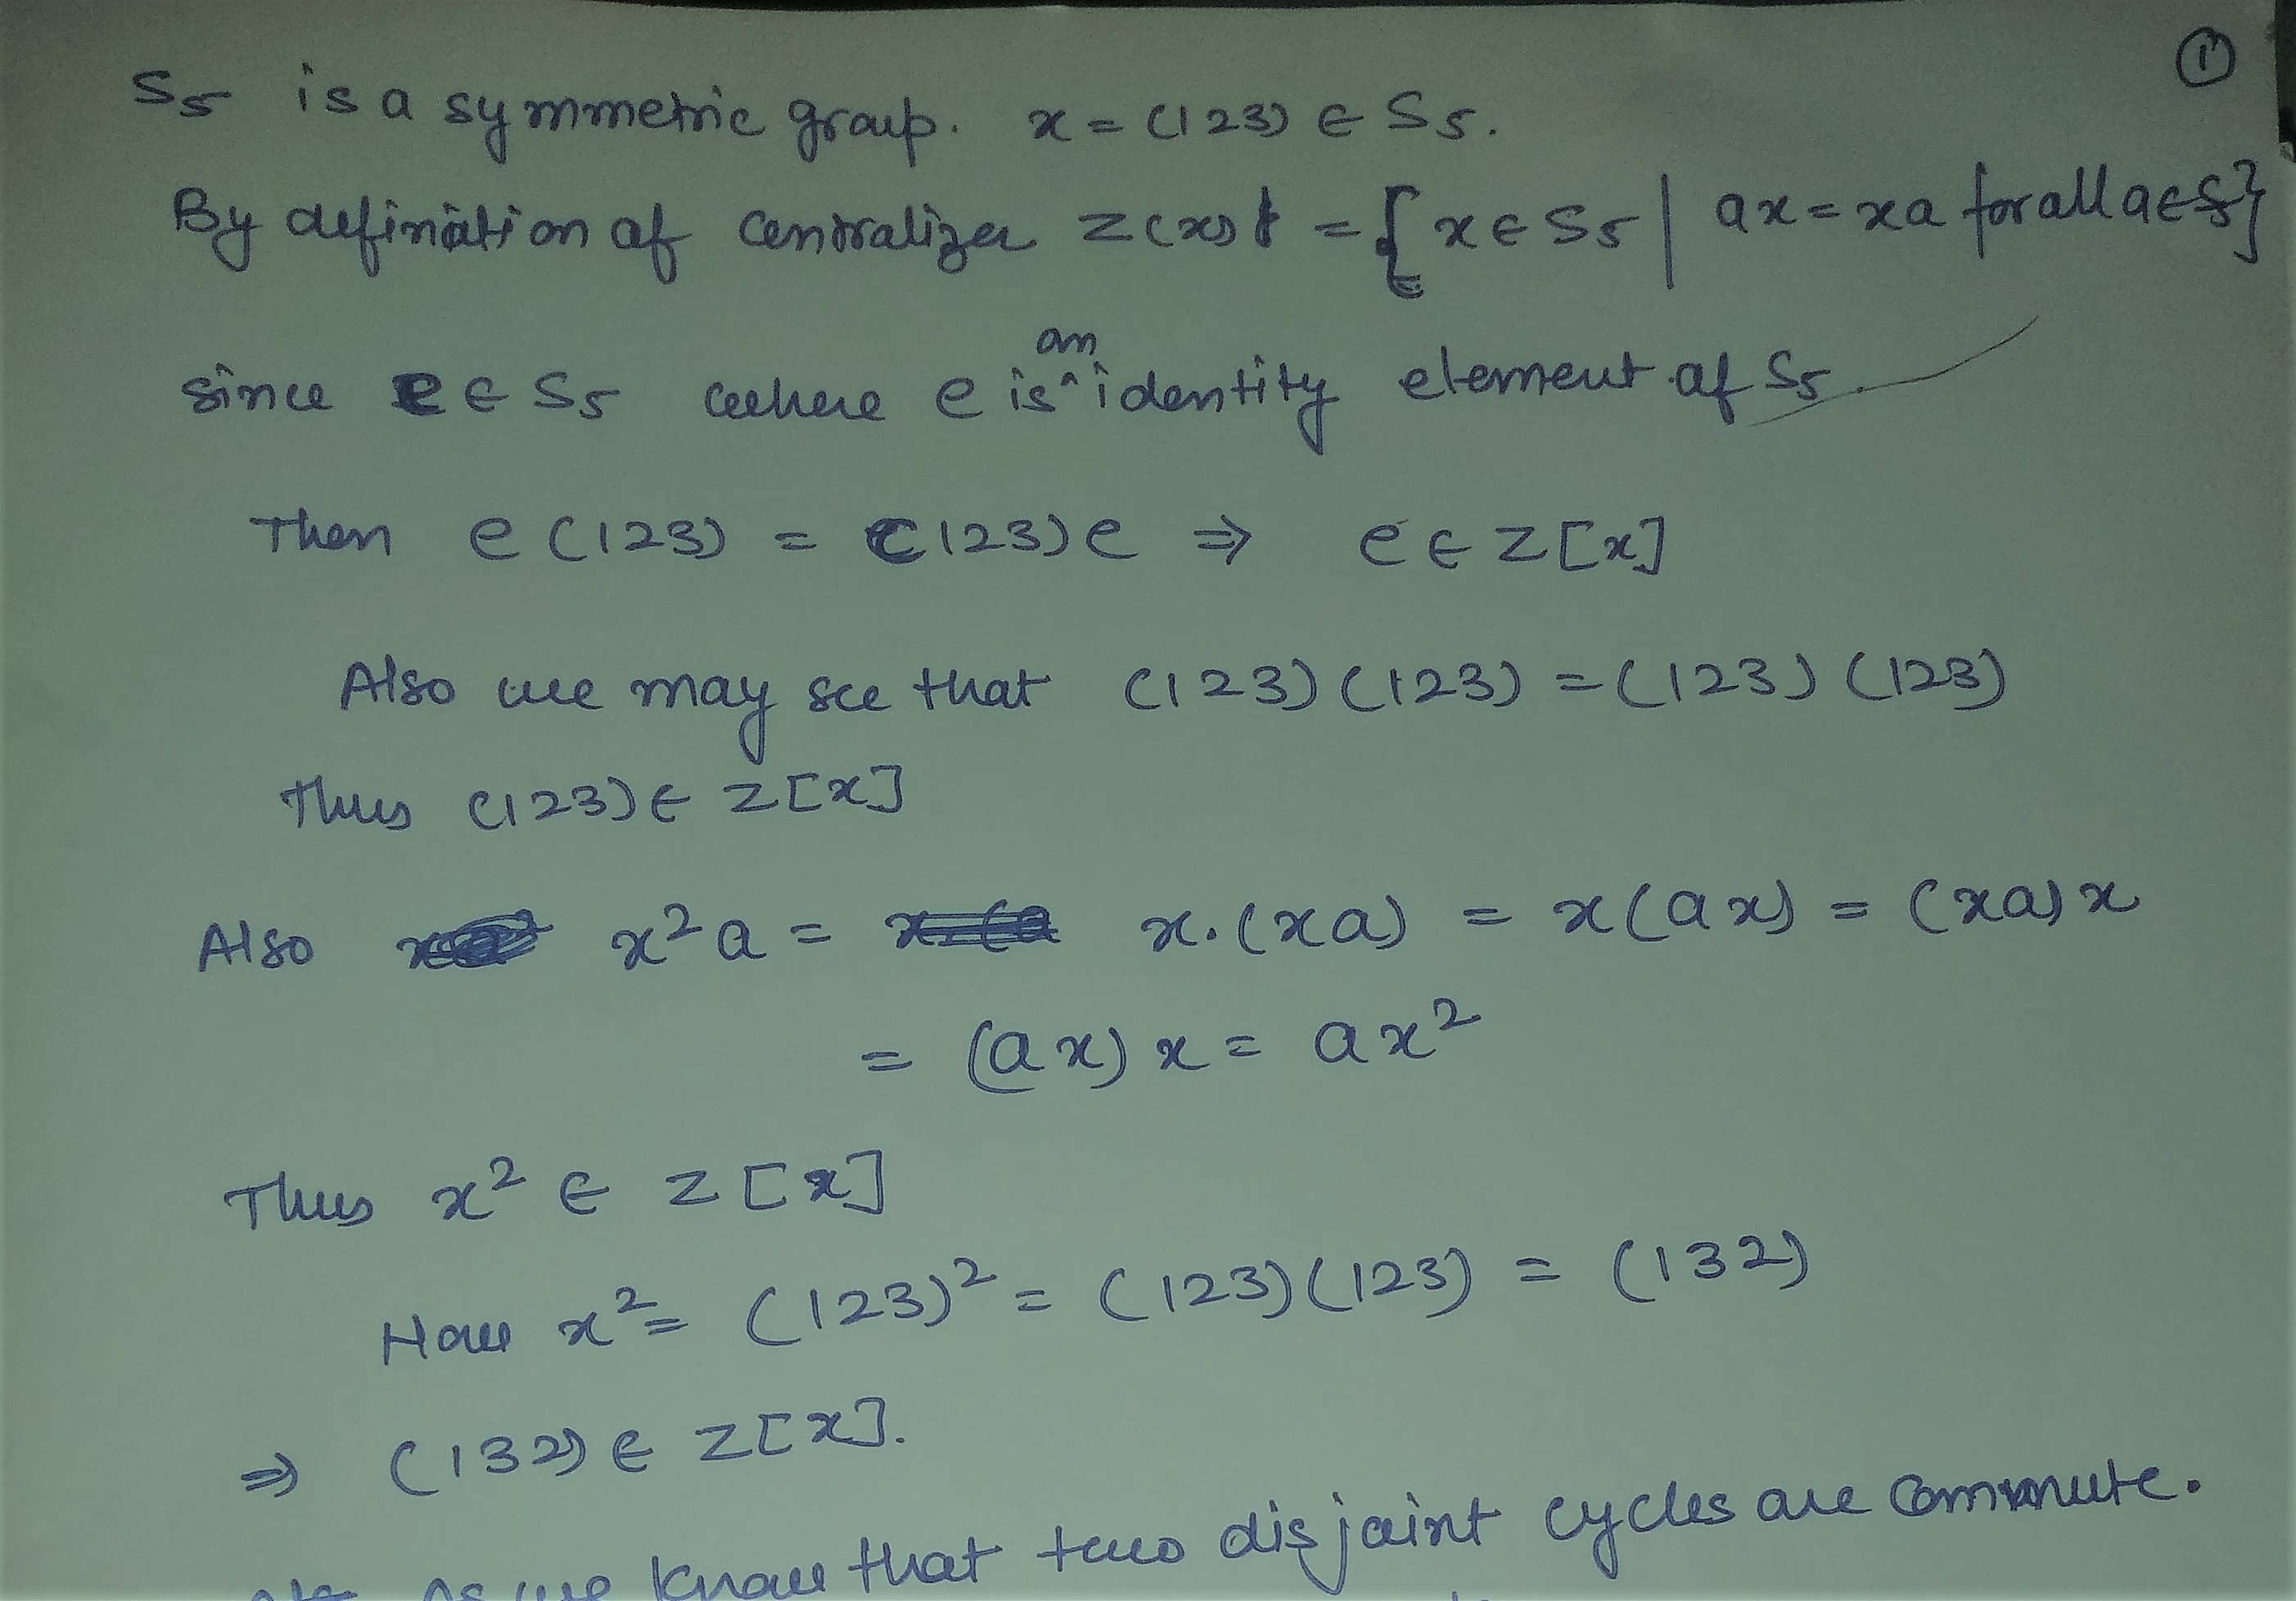 ①
S5 is a symmetric group. x = (123) ∈ S5.
By definition of centralizer Z(x) = { x ∈ S5 | ax = xa for all a ∈ S}
an
since e ∈ S5 where e is ^ identity element of S5
Then e (123) = (123)e ⇒ e ∈ Z[x]
Also we may see that (123)(123) = (123)(123)
Thus (123) ∈ Z[x]
Also x²a = x.(xa) = x(ax) = (xa)x
= (ax)x = ax²
Thus x² ∈ Z[x]
Now x² = (123)² = (123)(123) = (132)
⇒ (132) ∈ Z[x].
As we know that two disjoint cycles are commute.